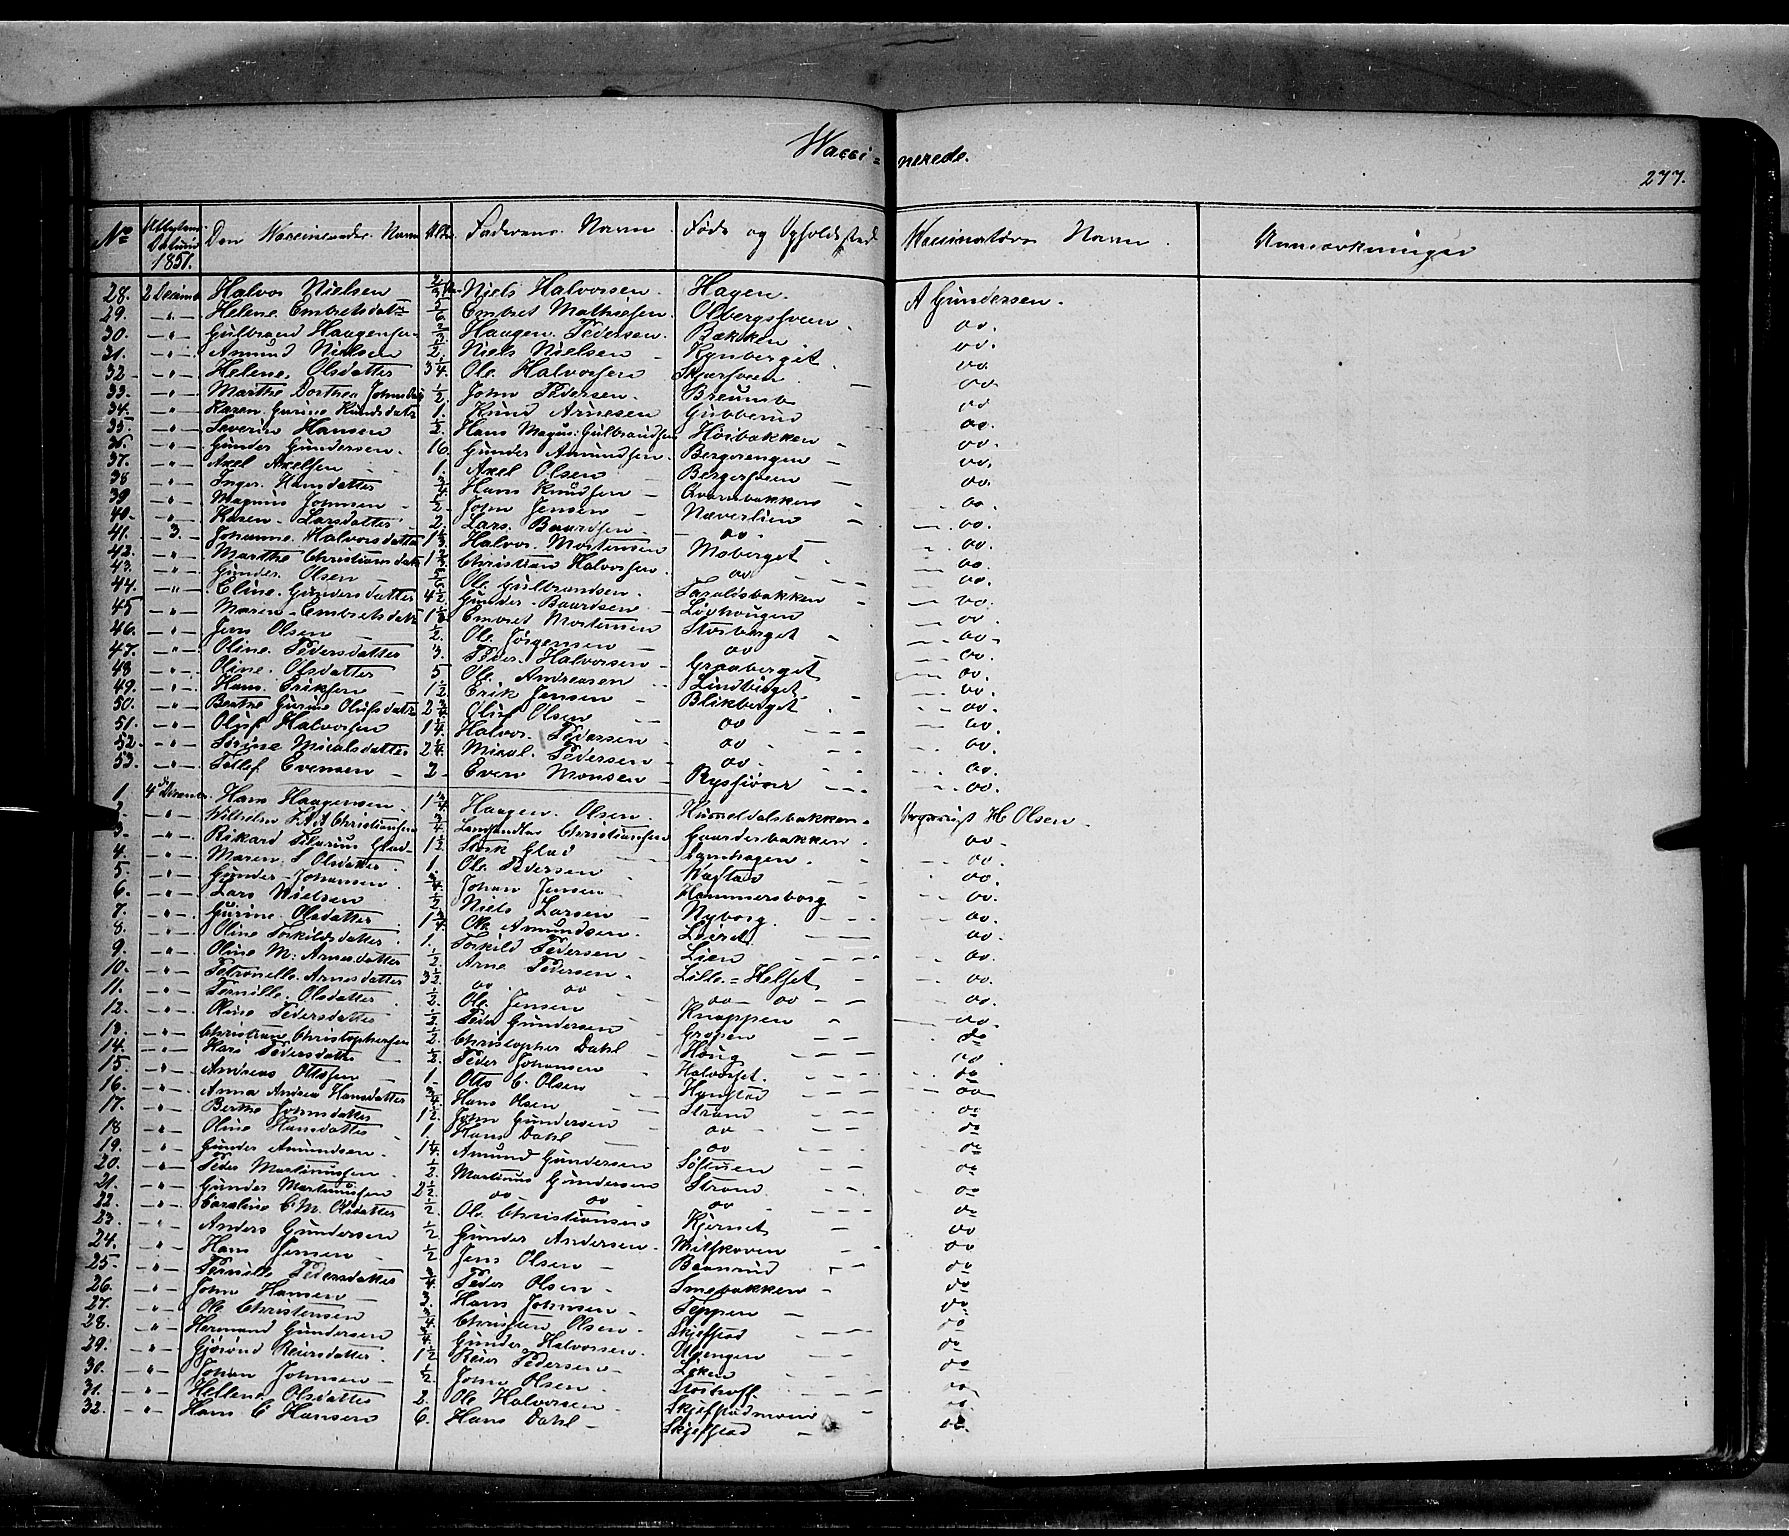 Vacci= nerede.
277.
No Attestens Datum 1851. Den Vaccineredes Navn Alder Faderens Navn Føde og Opholdssted Vaccinatørs Navn Anmærkninger
28. 2 Decemb Halvor Nielsen Niels Halvorsen Hagen. A Gundersen.
29. -"- Helene Embretsdatr 5/6 Embret Mathiesen Olbergsveen do.
30. -"- Gulbrand Haagensen Haagen Pedersen Bækken do.
31. -"- Amund Nielsen 1/2 Niels Nielsen Kynberget do.
32 -"- Helene Olsdatter 3 1/4 Ole Halvorsen do
33. -"- Marthe Dorthea Johnsdatr 1/2 John Pedersen do
34. -"- Karen Gurine Knudsdatr 1. Knud Arnesen Gubberud do.
35. -"- Severin Hansen 1/2. Hans Magns: Gulbrandsen Hosbakken do.
36. -"- Gunder Gundersen 16. Gunder Amundsen. Bergerengen do.
37. -"- Axel Axelsen 1. Axel Olsen Bergersveen do.
38 -"- Inger Hansdatter 3/4 Hans Knudsen Qvernbakken do.
39 -"- Magnus Johnsen 1/2 John Jensen Næverlien do.
40. -"- Karen Larsdatter 2. Lars Baardsen do. do.
41. -3. Johanne Halvorsdatter Halvor Mortensen Moberget do.
42. -"- Marthe Christiansdatr Christian Halvorsen do do.
43. -"- Gunder Olsen 5/6 Ole Gulbrandsen Taraldsbakken do.
44. -"- Eline Gundersdatter 4 1/2 Gunder Baardsen Løvhougen do.
45 -"- Maren Embretsdatr Embret Mortensen Storberget do.
46. -"- Jens Olsen 1/2. Ole Jørgensen do do.
47. -"- Oline Pedersdatter 3. Peder Halvorsen Graaberget do.
48 -"- Oline Olsdatter 5 Ole Andreasen Lindberget do.
49. -"- Hans Eriksen 1 1/2 Erik Jensen Blikberget do.
50. -"- Berthe Gurine Olufsdatr 2 3/4 Oluf Olsen do do.
51. -"- Oluf Halvorsen 1 1/4 Halvor Pedersen do do.
52. -"- Sørine Micalsdatter 2 1/4 Micul Pedersen do do.
53. -"- Tollef Evensen 2 Even Monsen Rysjøver do.
1. 4de Decembr. Hans Haagensen 1 3/4 Haagen Olsen Hummeldalsbakken H Olsen
2. -"- Wilhelm Christiansen 3/4 Christiansen Gaarderbakken do
3. -"- Rikard Glad 1 1/2 Glad do.
4. -"- Maren S Olsdatter 1. Ole Pedersen do.
5. -"- Gunder Johansen 3/4 Johan Jensen Hammersborg do.
6. -"- Lars Nielsen 1/2 Niels Larsen Nyborg do.
7. -"- Gurine Olsdatter 1 3/4 Ole Amundsen Leiret do.
8. -"- Oline Torkildsdatter 1. Torkild Pedersen Lien
9. -"- Oline M. Arnesdatter 1/2 Arne Pedersen Lille = Helset do.
10. -"- Petronelle Arnesdatter 3 1/2 do do do do do.
11. -"- Pernille Olsdatter 1/2 Ole Jensen Knappen do.
12. -"- Oline Pedersdatter 1/2 Peder Gundersen Gropen do
13. -"- Christiane Christophersen 1/2 Christopher Dahl Houg do
14. -"- Kari Pedersdatter 1/2 Peder Johansen Halvorset do
15. -"- Andreas Ottesen 1 Otto C. Olsen Hynstad do
16. -"- Anna Andrea Hansdatter 3/4 Hans Olsen Strand do
17. -"- Berthe Johnsdatter 1 1/2 John Gundersen do do
18 -"- Oline Hansdatter 1. Hans Dahl do do
19. -"- Gunder Amundsen 1 1/4 Amund Gundersen do
20. -"- Peder Martinussen 1/2 Martinus Gundersen Strand do
21. -"- Gunder Martinussen 2 1/2 do do do do
22. -"- Caroline C. M. Olsdatter 1/2 Ole Christiansen Kjernet do
23. -"- Anders Gundersen 1/2 Gunder Andersen do
24. -"- Hans Jensen 1/2 Jens Olsen do
25. -"- Pernille Pedersdatter 3/4 Peder Olsen Smebakken do
26. -"- John Hansen 3. Hans Johnsen Teppen do
27. -"- Ole Christensen 3/4 Christen Olsen Skjefstad do
28. -"- Hermand Gundersen 3/4 Gunder Halvorsen Ulvengen do
29. -"- Gjørond Reiersdatter 1 1/2 Reier Pedersen Løken do
30. -"- Johan Johnsen 1/2 John Olsen do
31. -"- Hellene Olsdatter 2. Ole Halvorsen Skjefstadmoen do
32. -"- Hans C Hansen 6. Hans Dahl Skjefstad do.